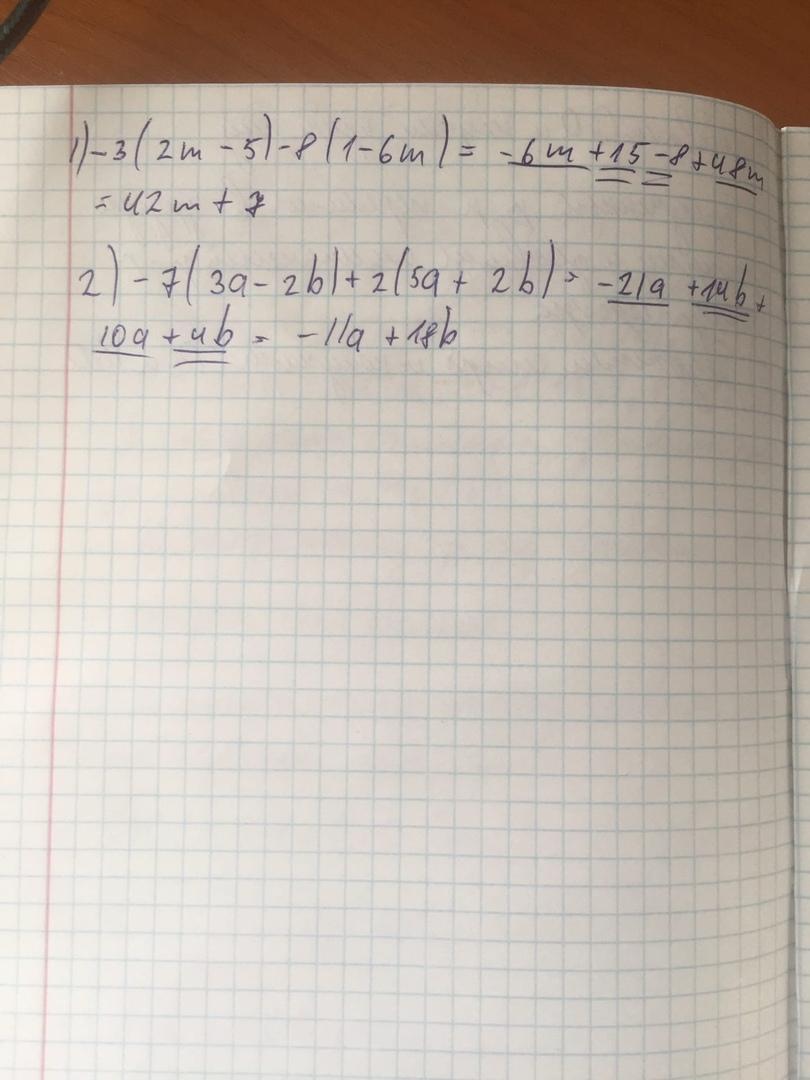 1) -3(2m-5)-8(1-6m)= -6m+15-8+48m
=42m+7
2) -7(3a-2b)+2(5a+2b)= -21a +14b+
10a+4b= -11a+18b